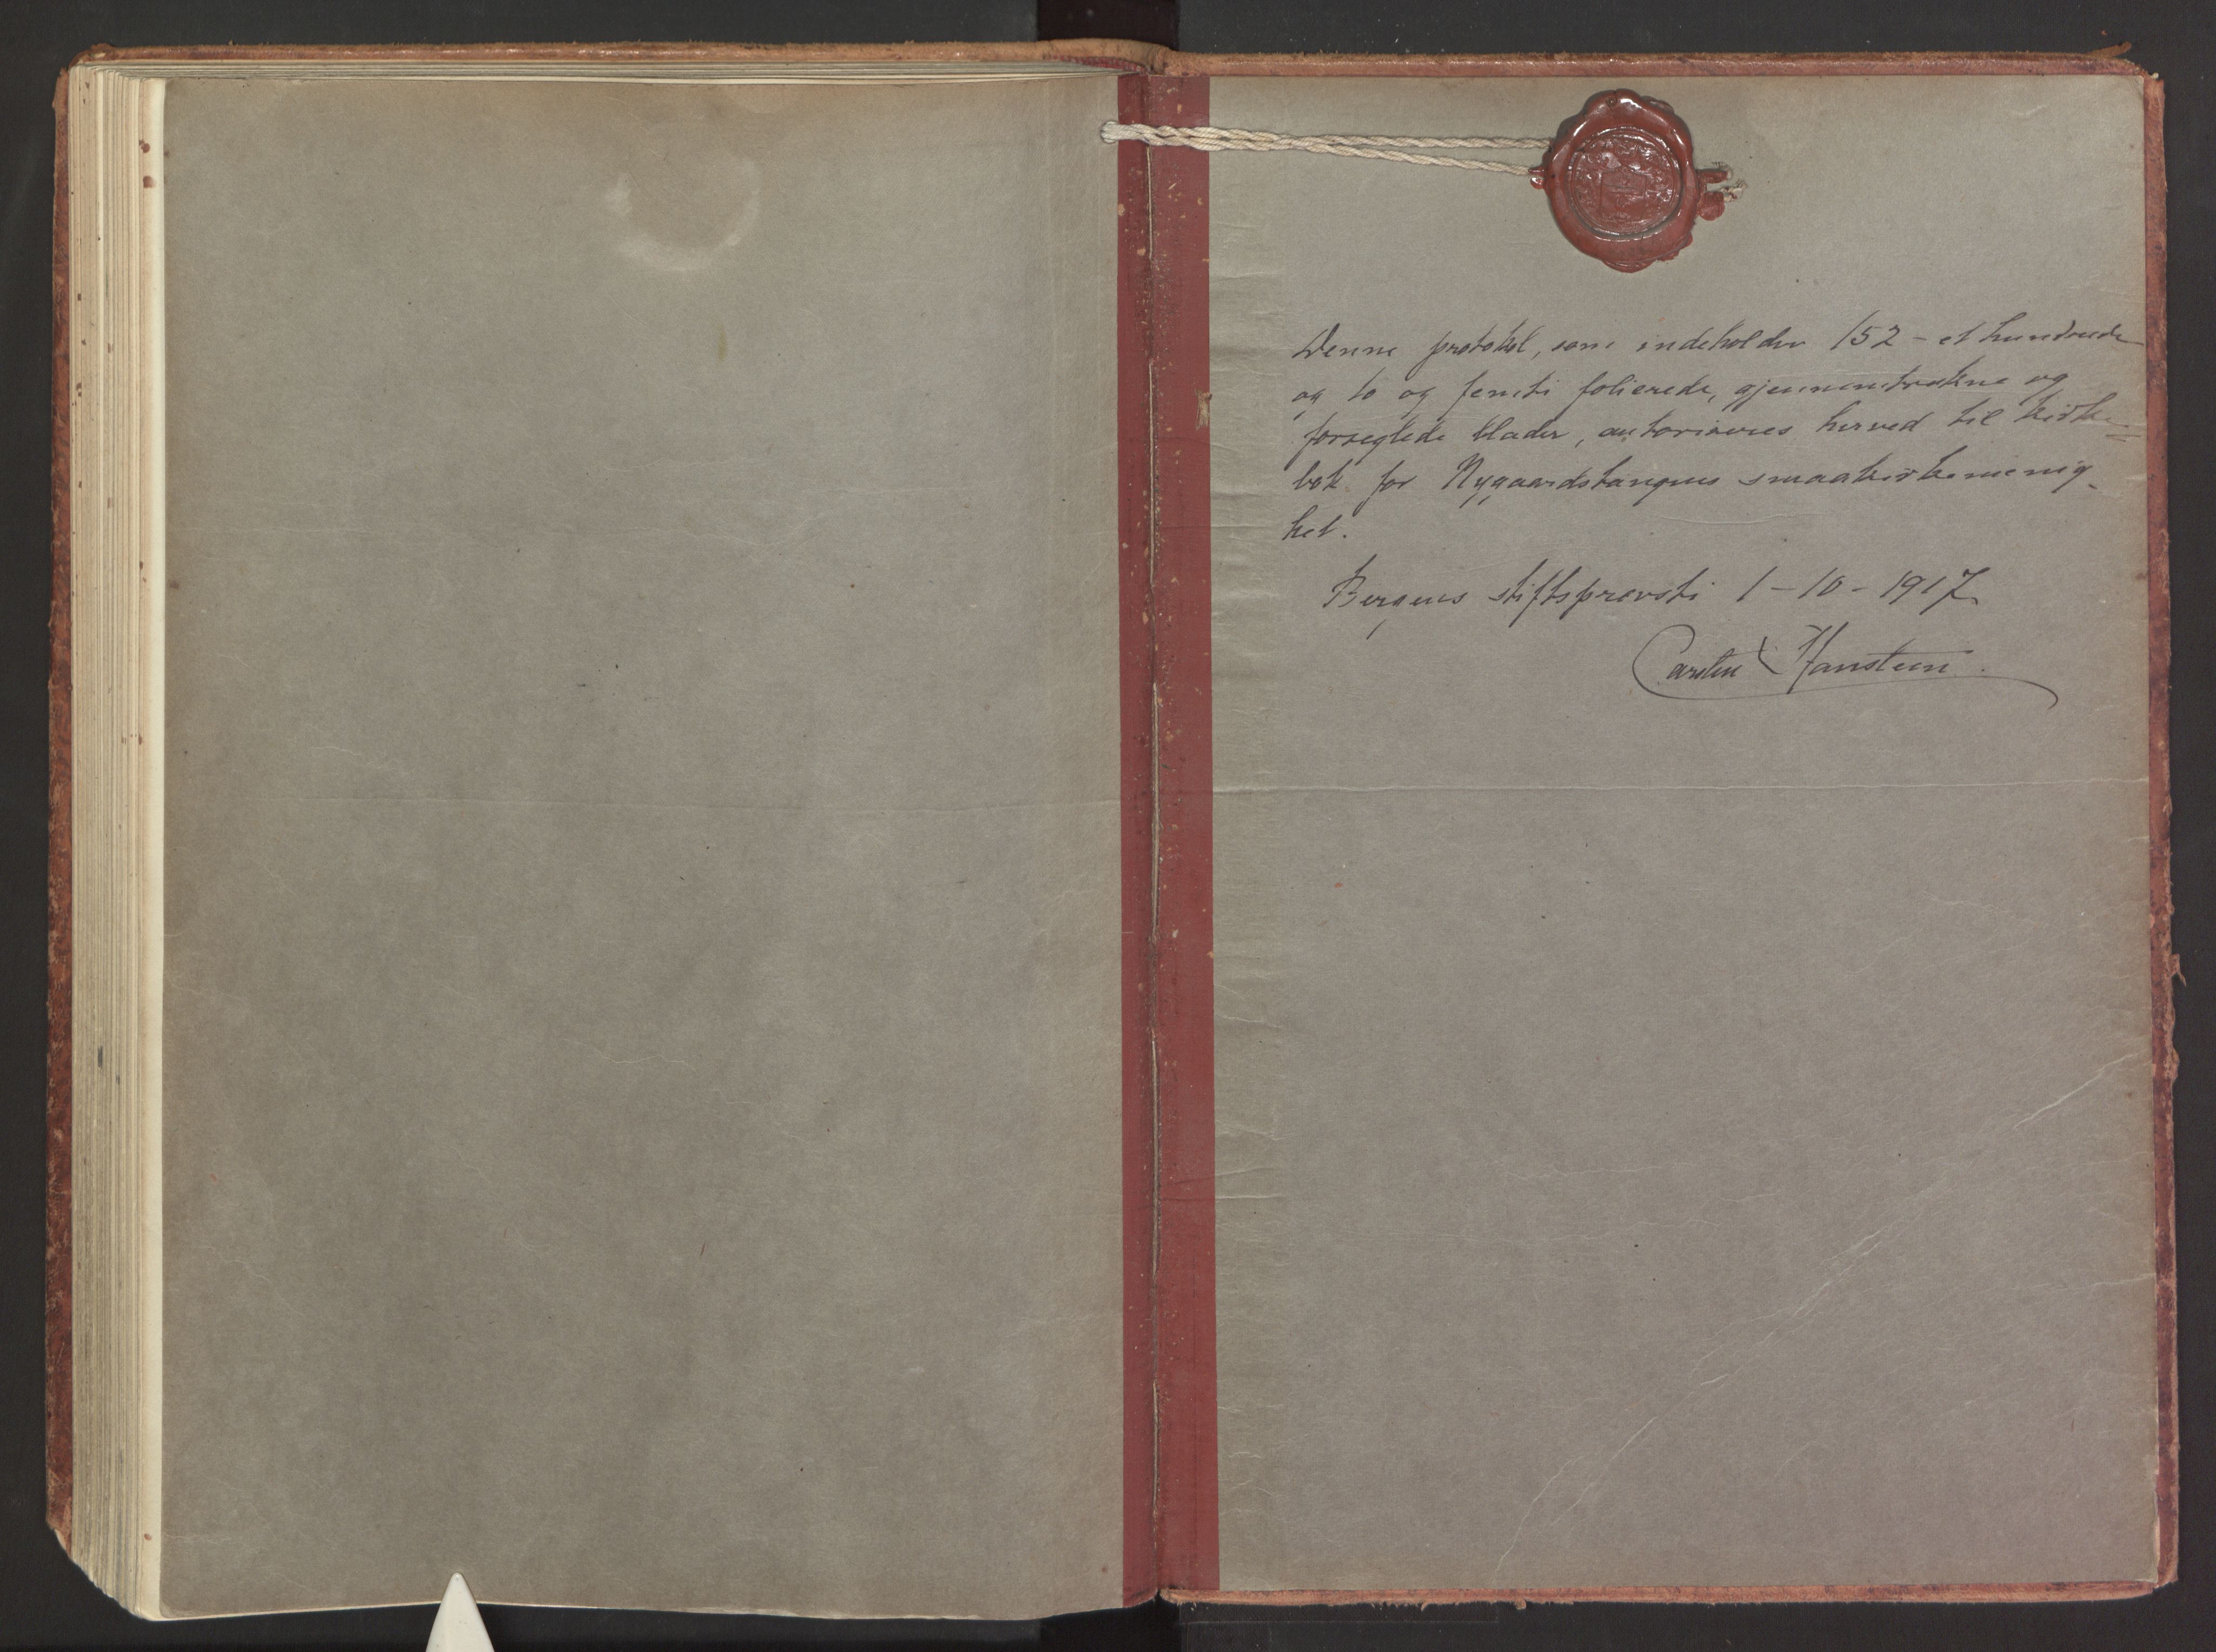 Denne protokol, som indeholder 152 - et hundrede
og to og femti folierede, gjennemtrukne og
forseglede blader, autoriseres herved til kirke=
bok for Nygaardstangens smaakirkemenig-
het.
Bergens stiftsprovsti 1-10-1917.
Carsten Hansteen.